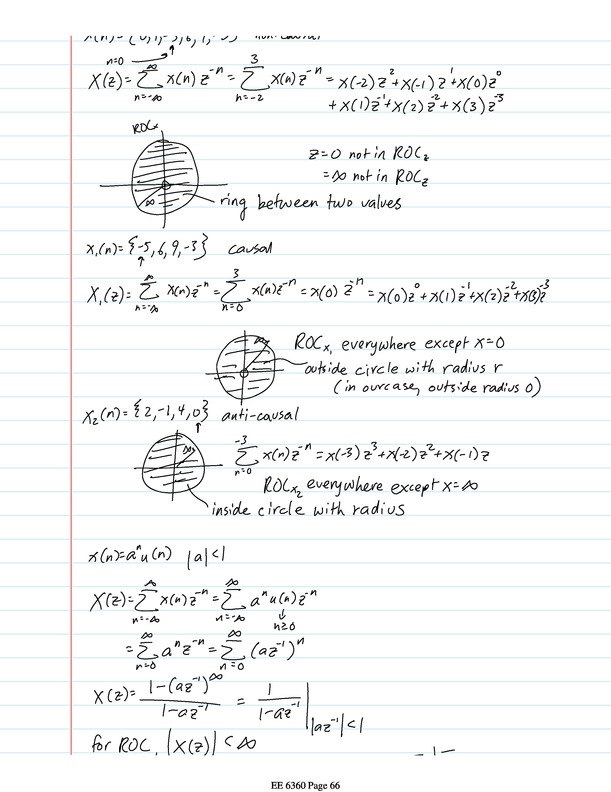 n=0
X(z) = ∑_{n=-∞}^{∞} x(n) z^{-n} = ∑_{n=-2}^{3} x(n) z^{-n} = x(-2) z^2 + x(-1) z^1 + x(0) z^0
+ x(1) z^{-1} + x(2) z^{-2} + x(3) z^{-3}
ROC_x
z=0 not in ROC_z
=∞ not in ROC_z
∞
ring between two values
x_1(n) = {-5, 6, 9, -3} causal
↑
X_1(z) = ∑_{n=-∞}^{∞} x(n) z^{-n} = ∑_{n=0}^{3} x(n) z^{-n} = x(0) z^{-n} = x(0) z^0 + x(1) z^{-1} + x(2) z^{-2} + x(3) z^{-3}
∞
ROC_{x_1} everywhere except x=0
outside circle with radius r
(in our case, outside radius 0)
x_2(n) = {2, -1, 4, 0} anti-causal
↑
∞
∑_{n=0}^{-3} x(n) z^{-n} = x(-3) z^3 + x(-2) z^2 + x(-1) z
ROC_{x_2} everywhere except x=∞
inside circle with radius
x(n) = a^n u(n) |a|<1
X(z) = ∑_{n=-∞}^{∞} x(n) z^{-n} = ∑_{n=-∞}^{∞} a^n u(n) z^{-n}
↓
n≥0
= ∑_{n=0}^{∞} a^n z^{-n} = ∑_{n=0}^{∞} (az^{-1})^n
X(z) = \frac{1-(az^{-1})^∞}{1-az^{-1}} = \frac{1}{1-az^{-1}} |_{|az^{-1}|<1}
for ROC, |X(z)| < ∞
EE 6360 Page 66